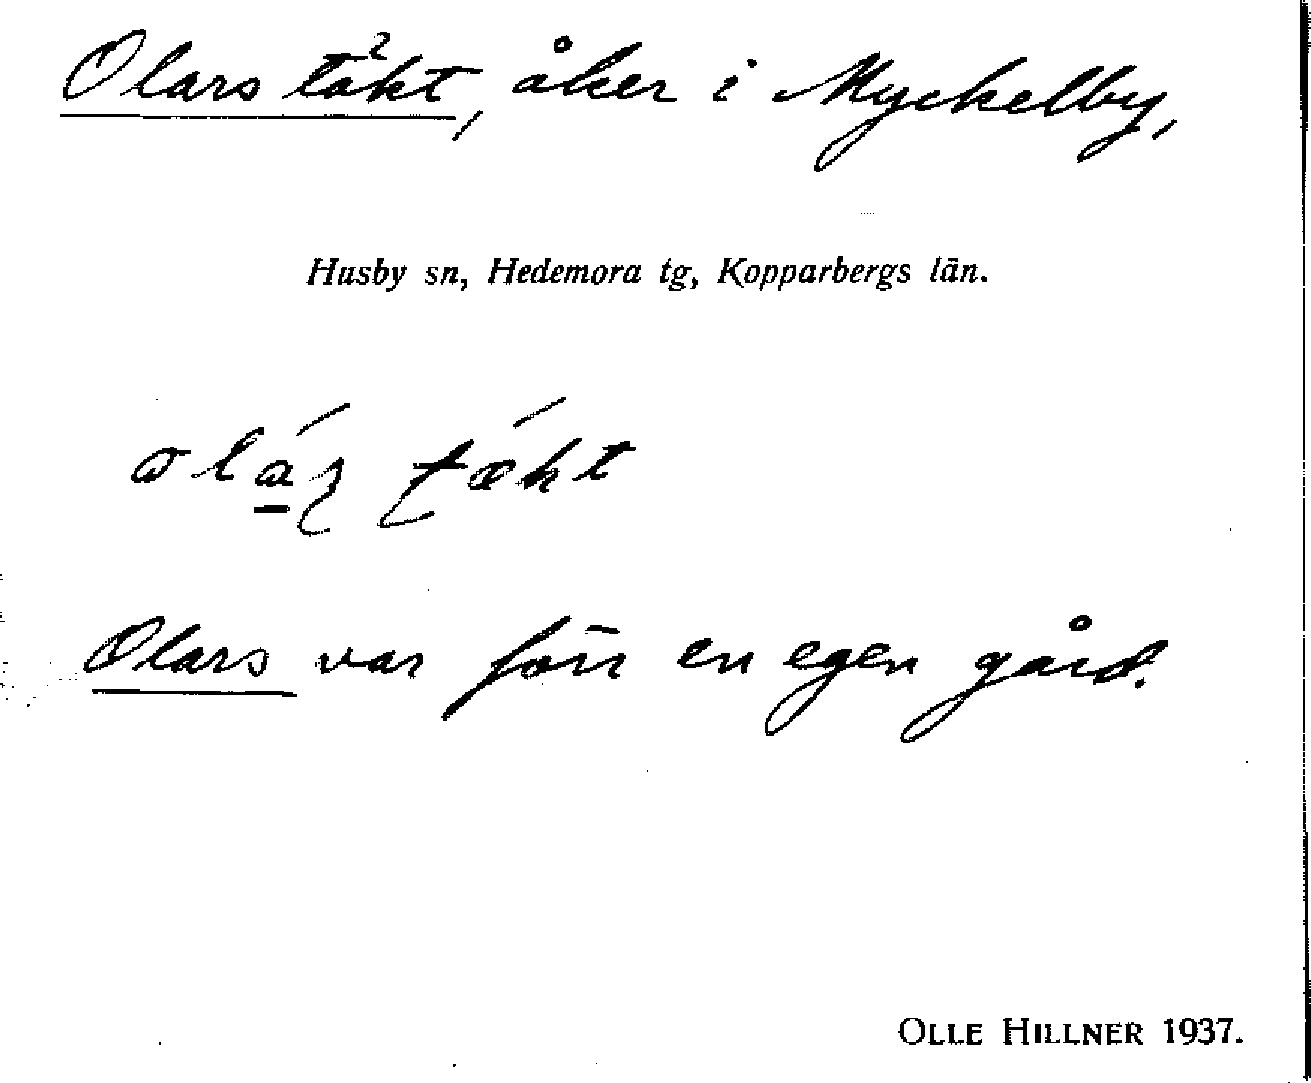 Olars täkt, åker i Myckelby,
Husby sn, Hedemora tg, Kopparbergs län.
Olars var förr en egen gård.
OLLE HILLNER 1937.